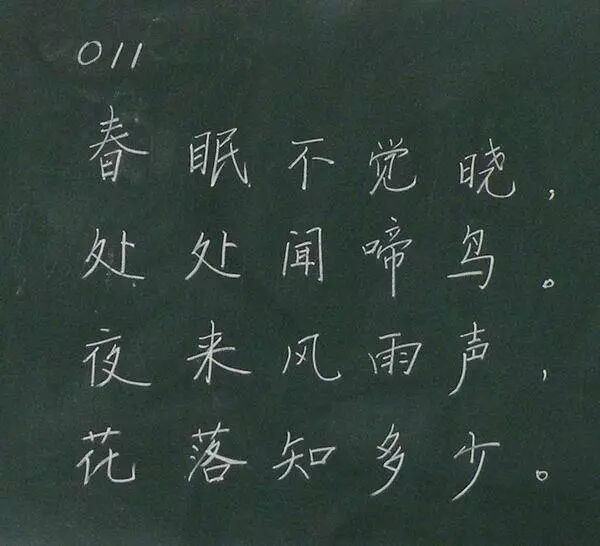 011
春眠不觉晓，
处处闻啼鸟。
夜来风雨声，
花落知多少。